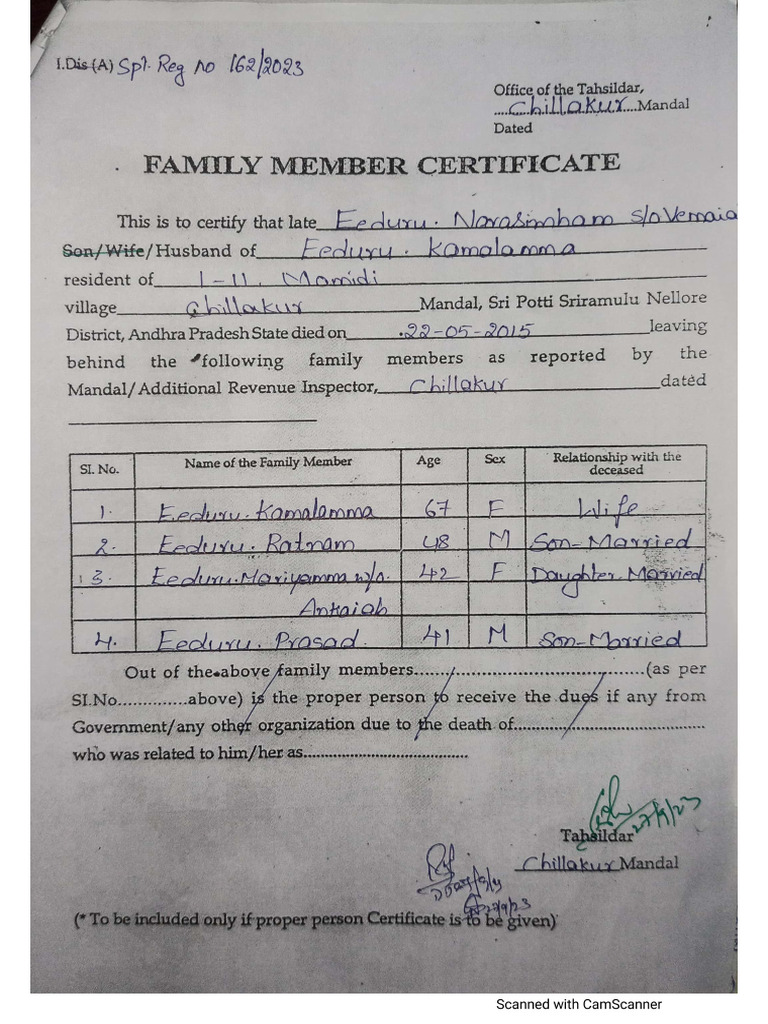 I.Dis (A) Spl. Reg no 162/2023
Office of the Tahsildar,
....Chillakur....Mandal
Dated
FAMILY MEMBER CERTIFICATE
This is to certify that late Eeduru. Narasimham S/o Vemaia
Son/Wife/Husband of Eeduru. Kamalamma
resident of 1-11, Mamidi
village Chillakur Mandal, Sri Potti Sriramulu Nellore
District, Andhra Pradesh State died on 22-05-2015 leaving
behind the following family members as reported by the
Mandal/Additional Revenue Inspector, Chillakur dated
SI. No. Name of the Family Member Age Sex Relationship with the deceased
1. Eeduru. Kamalamma 67 F Wife
2. Eeduru. Ratnam 48 M Son-Married
3. Eeduru. Mariyamma w/o. 42 F Daughter Married
Ankaiah
4. Eeduru. Prasad 41 M Son-Married
Out of the above family members..........(as per
SI.No..............above) is the proper person to receive the dues if any from
Government/any other organization due to the death of..........
who was related to him/her as..........
27/9/23
Tahsildar
Chillakur Mandal
27/9/23
(* To be included only if proper person Certificate is to be given)
Scanned with CamScanner